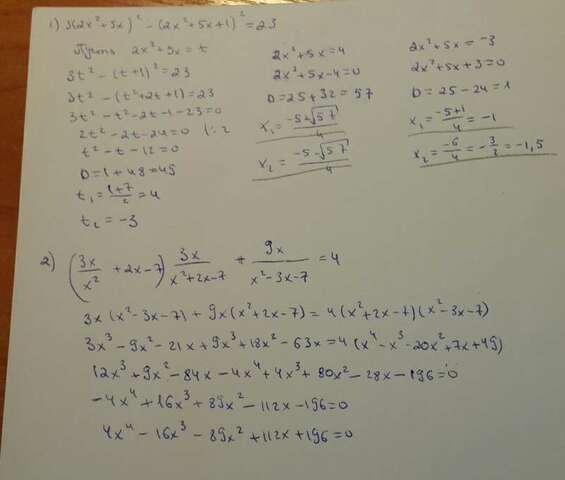 1) 3(2x²+5x)² - (2x²+5x+1)² = 23
Пусть 2x²+5x = t
3t² - (t+1)² = 23
3t² - (t²+2t+1) = 23
3t² - t² - 2t - 1 - 23 = 0
2t² - 2t - 24 = 0 (: 2
t² - t - 12 = 0
D = 1 + 48 = 49
t₁ = (1+7)/2 = 4
t₂ = -3
2x²+5x = 4
2x²+5x-4 = 0
D = 25 + 32 = 57
x₁ = (-5+√57)/4
x₂ = (-5-√57)/4
2x²+5x = -3
2x²+5x+3 = 0
D = 25 - 24 = 1
x₁ = (-5+1)/4 = -1
x₂ = -6/4 = -3/2 = -1,5
2) (3x/x² + 2x-7) 3x/(x²+2x-7) + 9x/(x²-3x-7) = 4
3x(x²-3x-7) + 9x(x²+2x-7) = 4(x²+2x-7)(x²-3x-7)
3x³ - 9x² - 21x + 9x³ + 18x² - 63x = 4(x⁴ - x³ - 20x² + 7x + 49)
12x³ + 9x² - 84x - 4x⁴ + 4x³ + 80x² - 28x - 196 = 0
-4x⁴ + 16x³ + 89x² - 112x - 196 = 0
4x⁴ - 16x³ - 89x² + 112x + 196 = 0